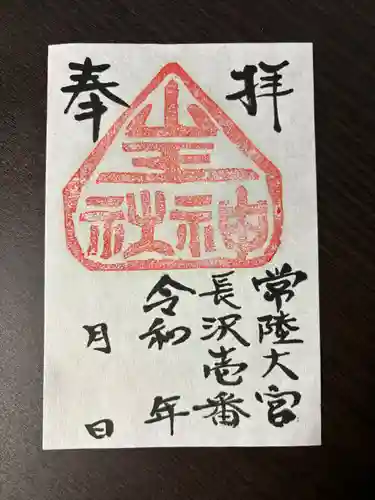 奉拝
山王
神社
常陸大宮
長沢壱番
令和 年
月 日